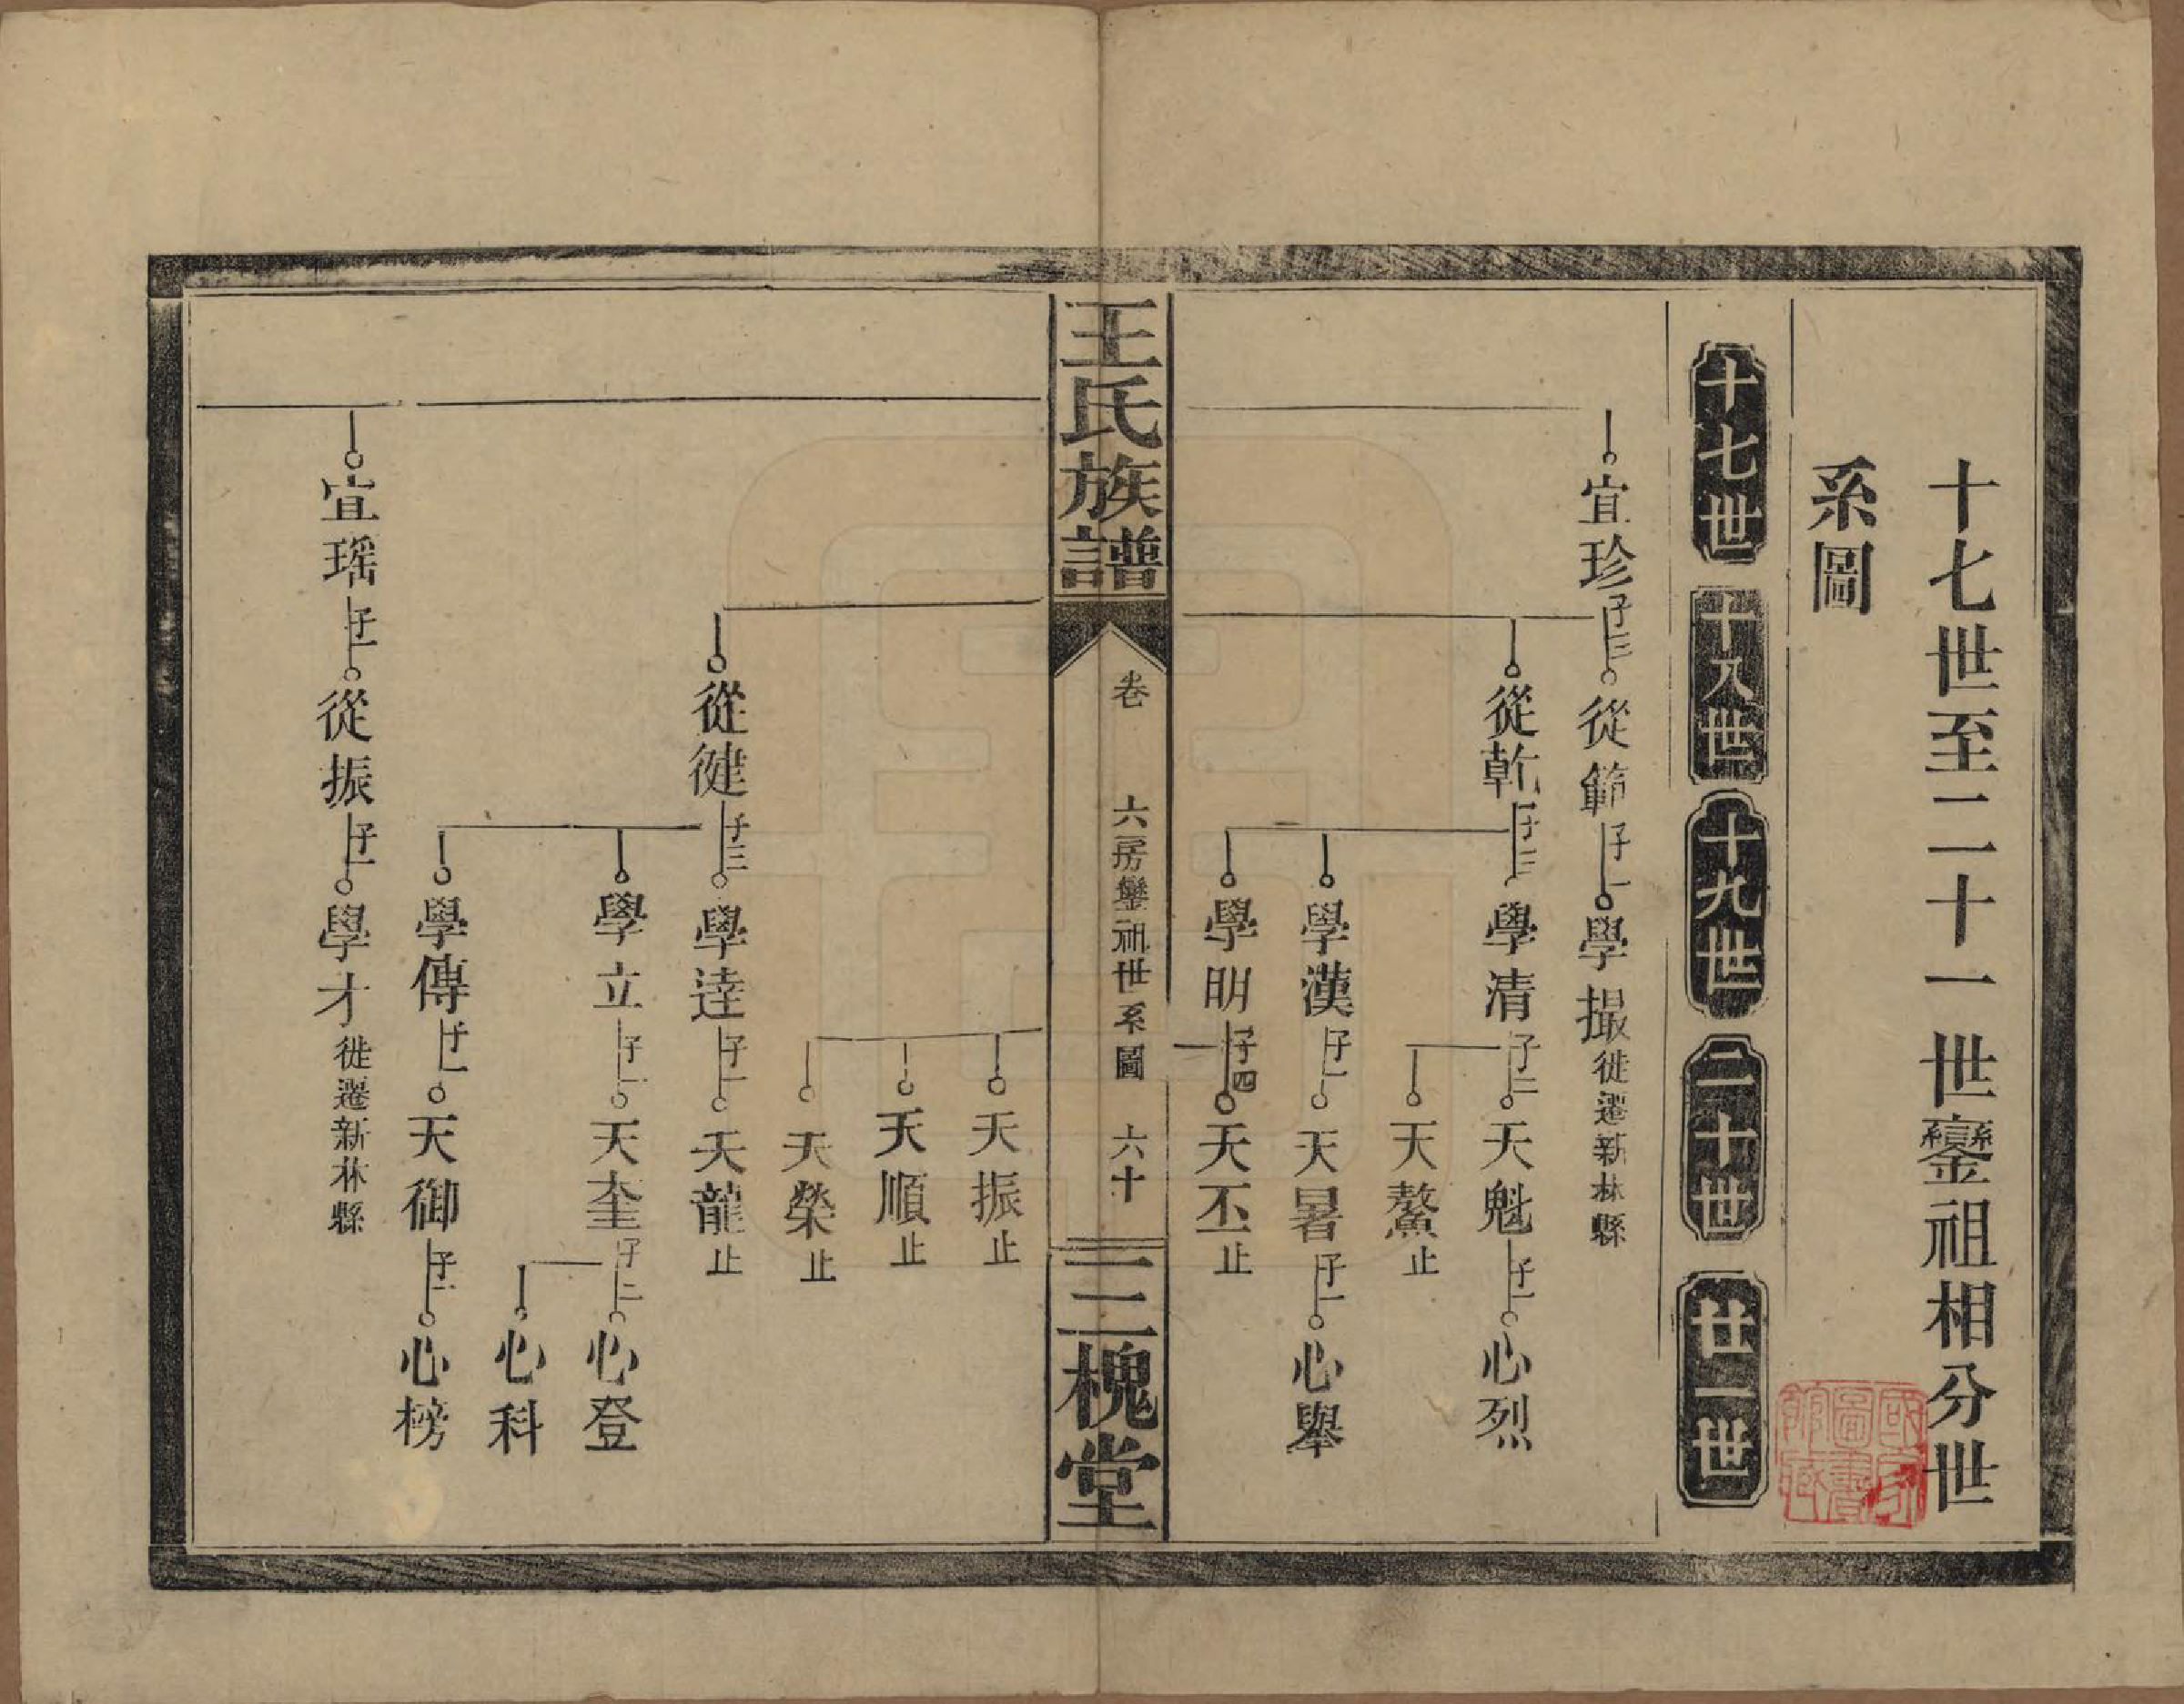 十七世至二十一世鑾祖相分世
系圖
十七世
十八世
十九世
二十世
廿一世
宜珍 子三 從範 子一 學撮 徙遷新林縣
從乾 子三 學清 子二 天魁 子一 心烈
天鰲 止
學漢 子一 天暑 子一 心舉
學明 子四 天丕 止
王氏族譜
卷
六房鑾祖世系圖
六十
三槐堂
天振 止
天順 止
天榮 止
從徤 子三 學逹 子一 天龍 止
學立 子一 天奎 子二 心登
心科
學傳 子一 天御 子一 心榜
宜瑶 子一 從振 子一 學才 徙遷新林縣
國家圖書館藏